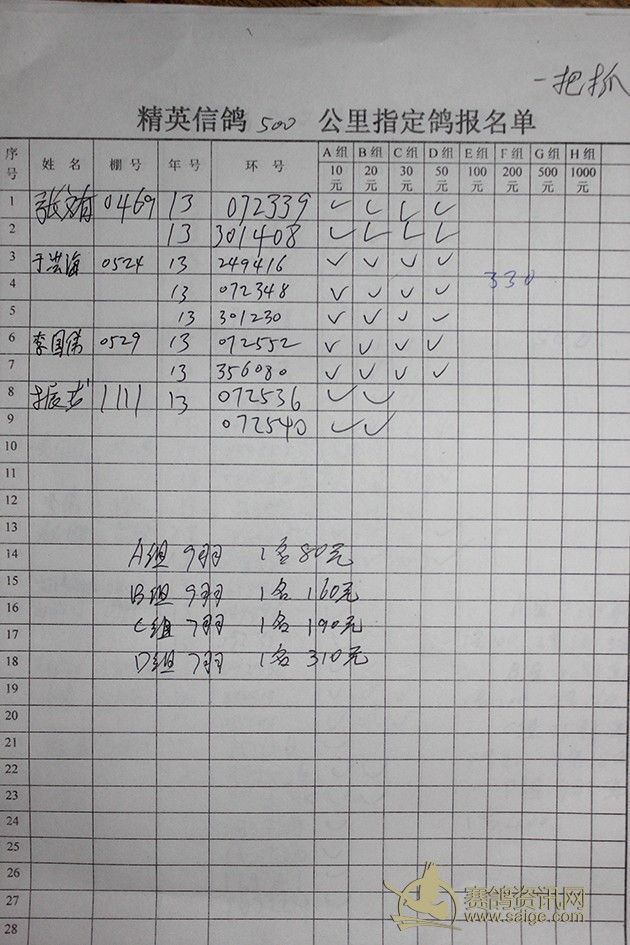 一把抓
精英信鸽 500 公里指定鸽报名单
序号 姓名 棚号 年号 环号 A组 10元 B组 20元 C组 30元 D组 50元 E组 100元 F组 200元 G组 500元 H组 1000元
1 张文有 0469 13 072339 ✓ ✓ ✓ ✓
2 13 301408 ✓ ✓ ✓ ✓
3 于洪海 0524 13 249416 ✓ ✓ ✓ ✓
330
4 13 072348 ✓ ✓ ✓ ✓
5 13 301230 ✓ ✓ ✓ ✓
6 李国伟 0529 13 072552 ✓ ✓ ✓ ✓
7 13 356080 ✓ ✓ ✓ ✓
8 1111 13 072536 ✓ ✓
9 072540 ✓ ✓
10
11
12
13
14 A组 9羽 1名 80元
15 B组 9羽 1名 160元
16 C组 7羽 1名 190元
17
18 D组 7羽 1名 310元
19
20
21
22
23
24
25
26
27
28
赛鸽资讯网
www.saige.com